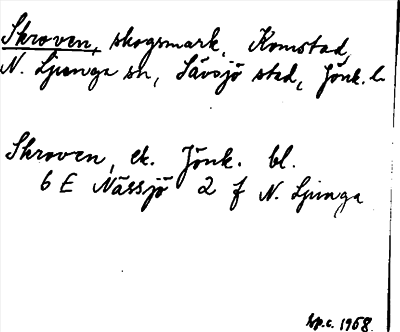 Skroven, skogsmark, Komstad,
N. Ljunga sn, Sävsjö stad, Jönk. l.
Skroven, ek. Jönk. bl.
6 E Nässjö 2 f N. Ljunga
1968